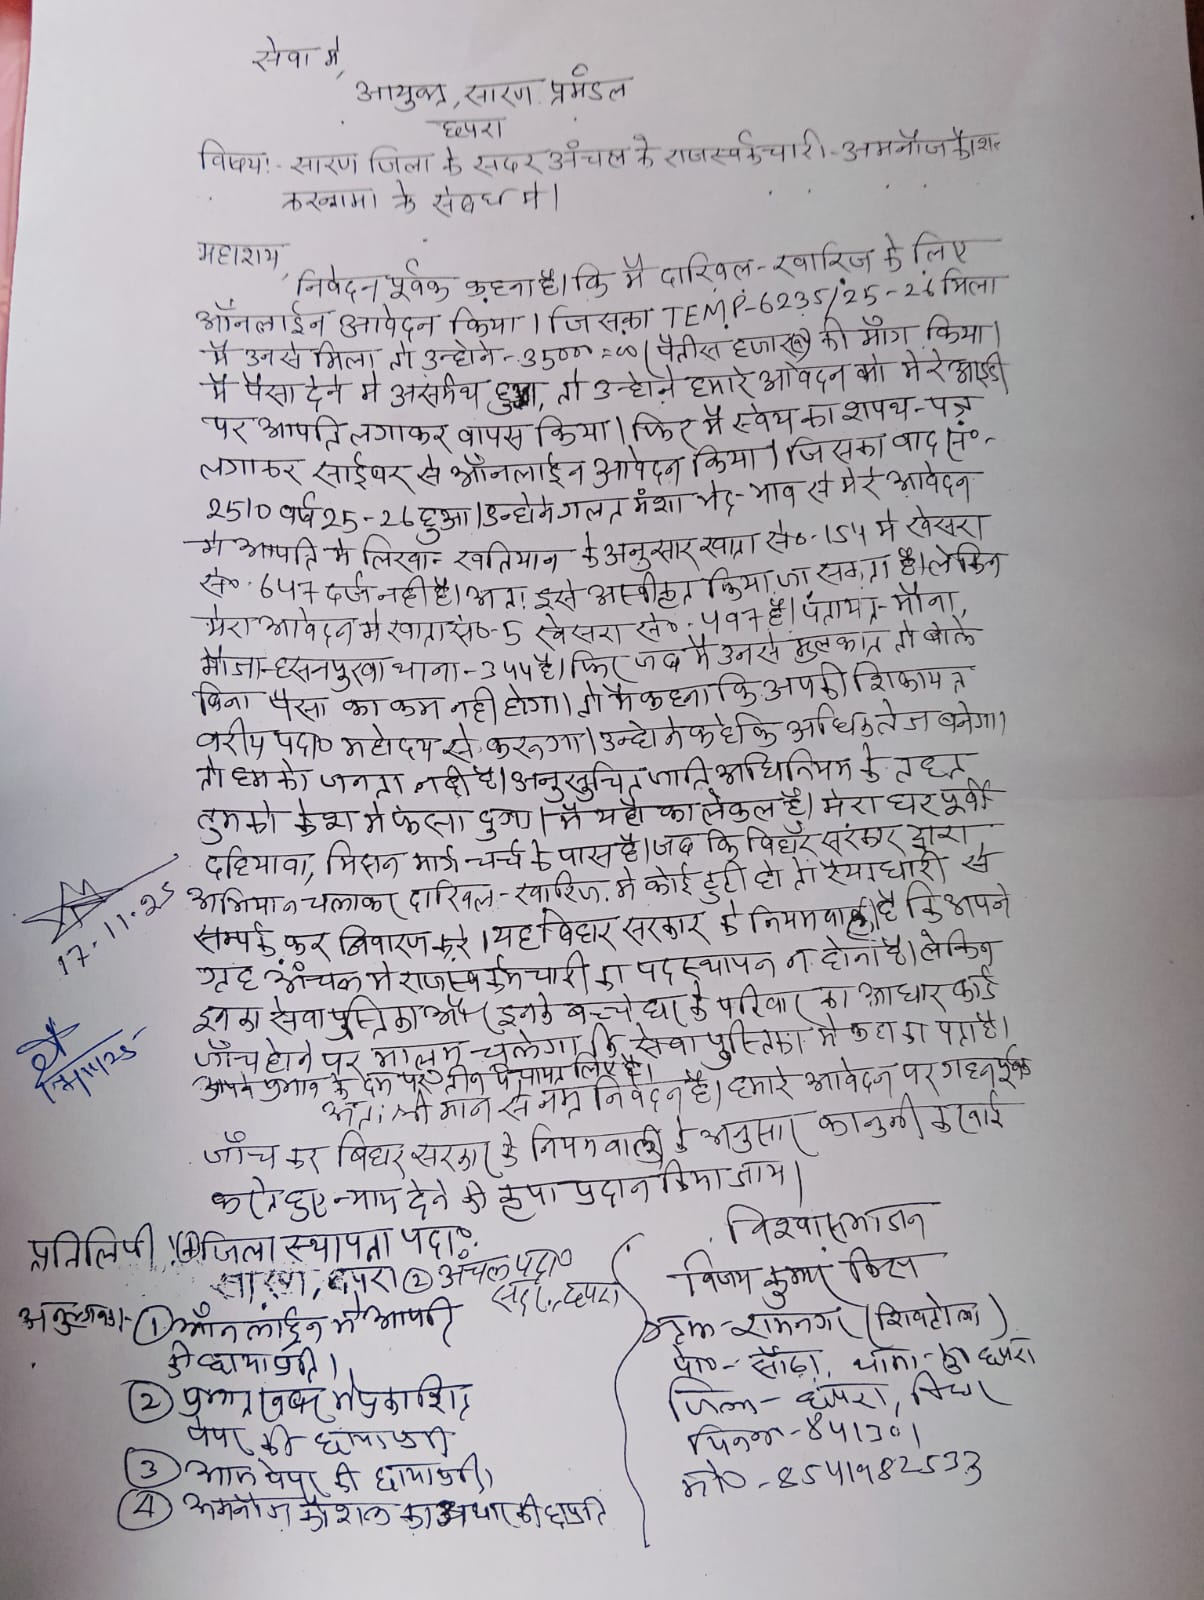 सेवा में,
आयुक्त, सारण प्रमंडल
छपरा
विषय:- सारण जिला के सदर अंचल के राजस्व कर्मचारी - अमनौज कौशल
के संबंध में।
महाशय,
निवेदन पूर्वक कहना है। कि मैं दाखिल-खारिज के लिए
ऑनलाईन आवेदन किया। जिसका TEMP-6235/25-26 मिला
मैं उनसे मिला तो उन्होने- 35000=00 (पैंतीस हजार रू) की माँग किया।
मैं पैसा देने में असमंथ हुआ, तो उन्होंने हमारे आवेदन को मेरे आइडी
पर आपति लगाकर वापस किया। फिर मैं स्वंय का शपथ-पत्र
लगाकर साईबर से ऑनलाईन आवेदन किया। जिसका वाद सं०-
2510 वर्ष 25-26 हुआ। उन्होने गलत मंशा भेद-भाव से मेरे आवेदन
में आपति में लिखा- खतियान के अनुसार खाता सं०-154 में खेसरा
सं०- 647 दर्ज नही है। अतः इसे अस्वीकृत किया जा सकता है। लेकिन
मेरा आवेदन में खाता सं०-5 खेसरा सं०- 497 है। पंचायत- मौना,
मौजा- हसनपुरवा थाना- 344 है। फिर जब मैं उनसे मुलकात तो बोले
बिना पैसा का कम नही होगा। तो मैं कहना कि अपकी शिकायत
वरीय पदा० महोदय से करूगा। उन्होने कहे कि अधिक तेज बनेगा।
तो हमको जनता नही है। अनुसुचित जाति अधिनियम के तहत
तुमको केश में फंसा दुगा। मैं यहाँ का लोकल हूँ। मेरा घर पूर्वी
दहियावा, मिशन मार्ग चर्च के पास है। जब कि बिहार सरकार द्वारा
अभियान चलाकर दाखिल-खारिज में कोई त्रुटी हो तो रैयतधारी से
सम्पर्क कर निवारण करें। यह बिहार सरकार के नियमवाली है कि अपने
गृह अंचल में राजस्व कर्मचारी का पदस्थापन न होना है। लेकिन
इनका सेवा पुस्तिका और इनके बच्चे घर के परिवार का आधार कार्ड
जाँच होने पर मालुम चलेगा कि सेवा पुस्तिका में कहा का पता है।
अपने प्रभाव के दम पर तीन पंचायत लिए है।
अतः श्री मान से नम्र निवेदन है। हमारे आवेदन पर गहन पूर्वक
जाँच कर बिहार सरकार के नियमवाली के अनुसार कानुनी करवाई
करते हुए न्याय देने की कृपा प्रदान किया जाय।
17.11.25
17/11/25
प्रतिलिपी (1) जिला स्थापना पदा०
सारण, छपरा (2) अंचल पदा०
सदर, छपरा
अनुलग्नक- (1) ऑनलाईन में आपती
की छायाप्रति।
(2) प्रभात खबर में प्रकाशित
पेपर की छायाप्रती
(3) आज पेपर की छायाप्रती।
(4) अमनौज कौशल का अधार की छाप्रति
विश्वासभाजन
विजय कुमार
ग्राम- रामनगर (शिवटोला)
पो०- साँढ़ा, थाना- छपरा
जिला- छपरा, बिहार
पिनक- 841301
मो०- 8541982533